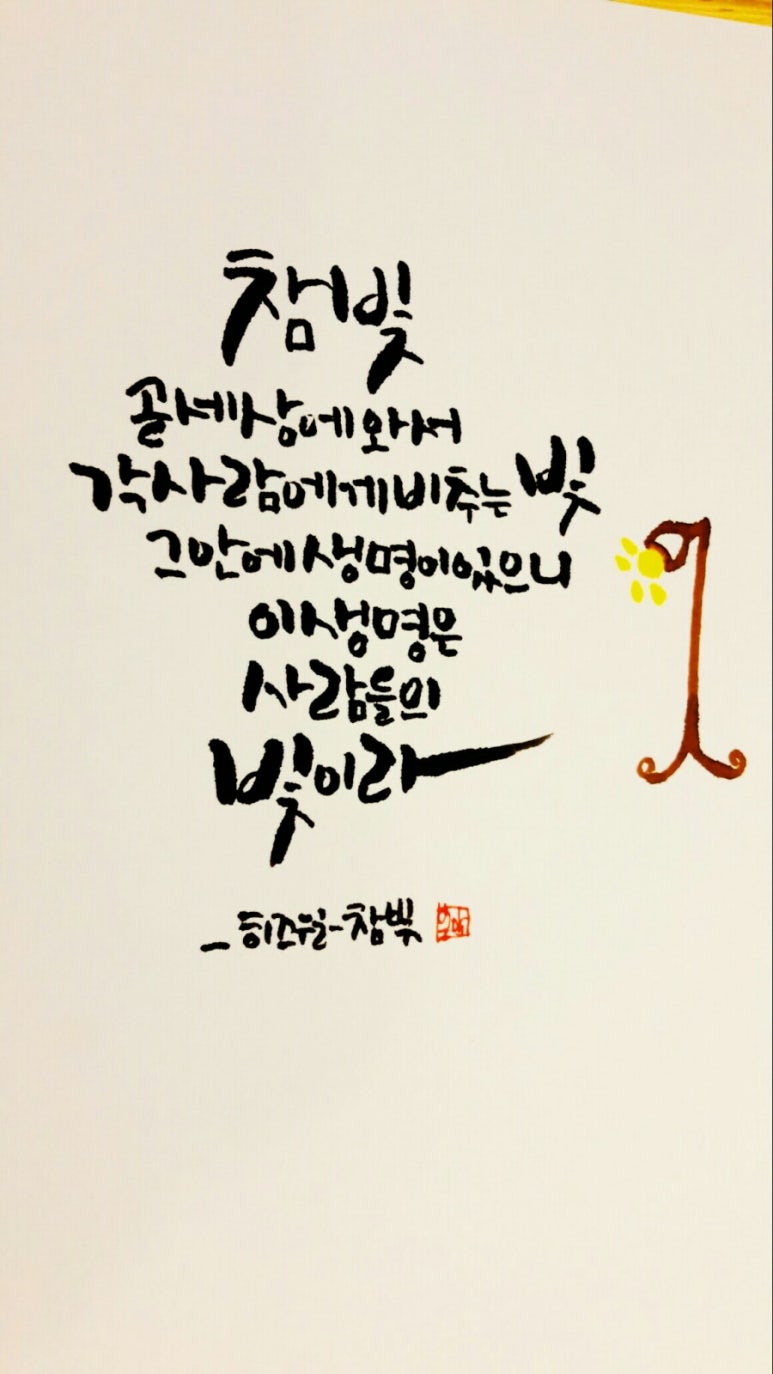 참빛
곧세상에와서
각사람에게비추는빛
그안에생명이있으니
이생명은
사람들의
빛이라
참빛